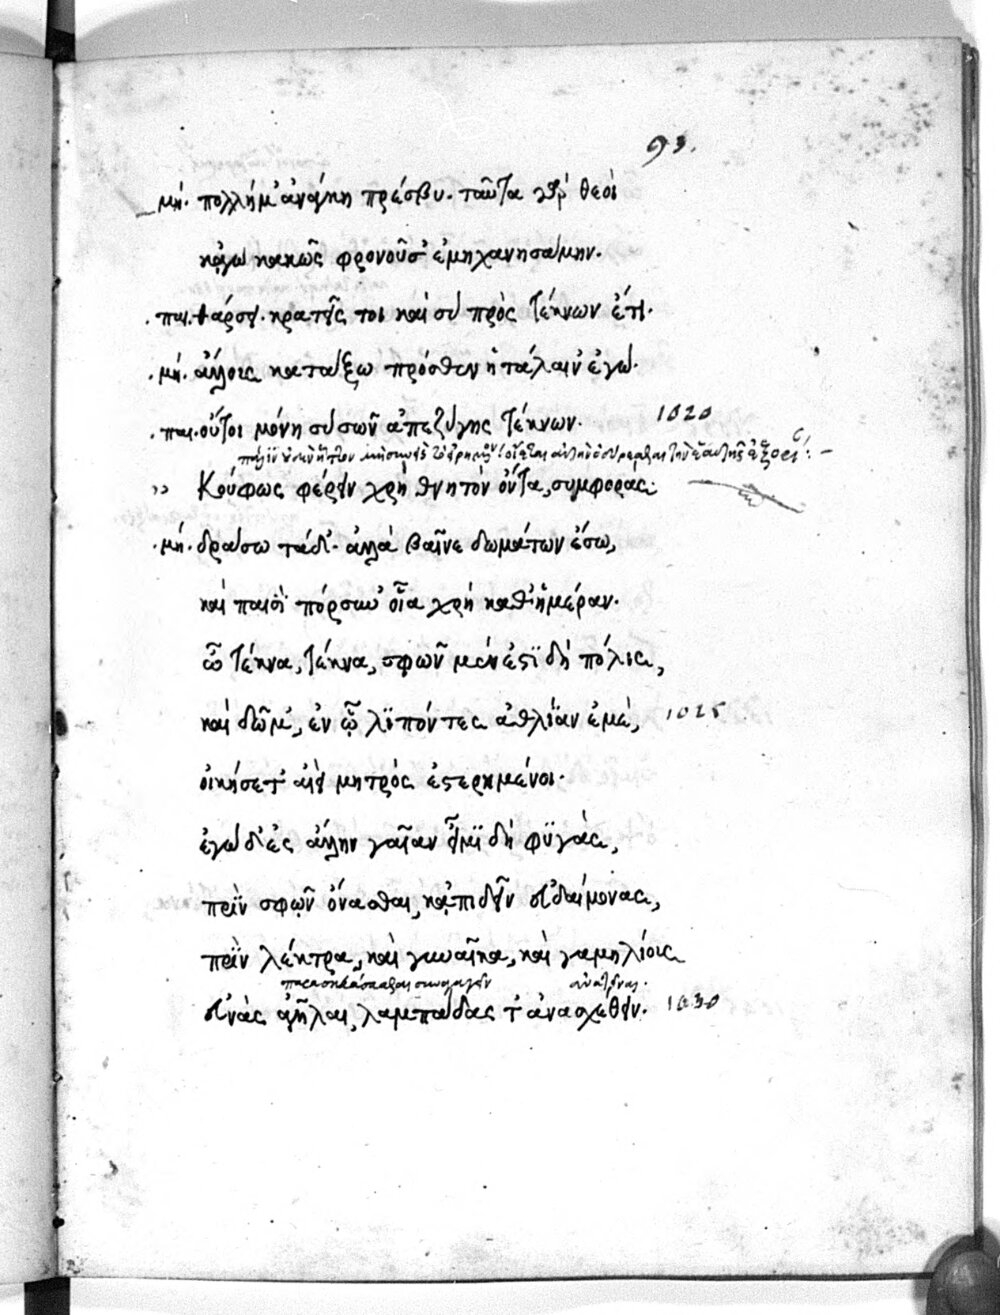 93.
μή. πολλή μ' ἀνάγκη πρέσβυ. ταῦτα γὰρ θεοὶ
κἀγὼ κακῶς φρονοῦσ' ἐμηχανησάμην.
παι. θάρσει. κρατεῖς τοι καὶ σὺ πρὸς τέκνων ἔτι.
μή. ἄλλους κατάξω πρόσθεν ἡ τάλαιν' ἐγώ.
παι. οὔτοι μόνη σὺ σῶν ἀπεζύγης τέκνων. 1020
Κούφως φέρειν χρὴ θνητὸν ὄντα, συμφοράς.
μή. δράσω τάδ'. ἀλλὰ βαῖνε δωμάτων ἔσω,
καὶ παισὶ πόρσυν' οἷα χρὴ καθ' ἡμέραν.
ὦ τέκνα, τέκνα, σφῶν μὲν ἐστὶ δὴ πόλις,
καὶ δῶμ', ἐν ᾧ λιπόντες ἀθλίαν ἐμέ, 1025
οἰκήσετ' αἰεὶ μητρὸς ἐστερημένοι.
ἐγὼ δ' ἐς ἄλλην γαῖαν εἶμι δὴ φυγάς,
πρὶν σφῷν ὄνασθαι, κἀπιδεῖν εὐδαίμονας,
πρὶν λέκτρα, καὶ γυναῖκα, καὶ γαμηλίους
ἀνατεῖναι.
εὐνὰς ἀγῆλαι, λαμπάδας τ' ἀνασχεθεῖν. 1030